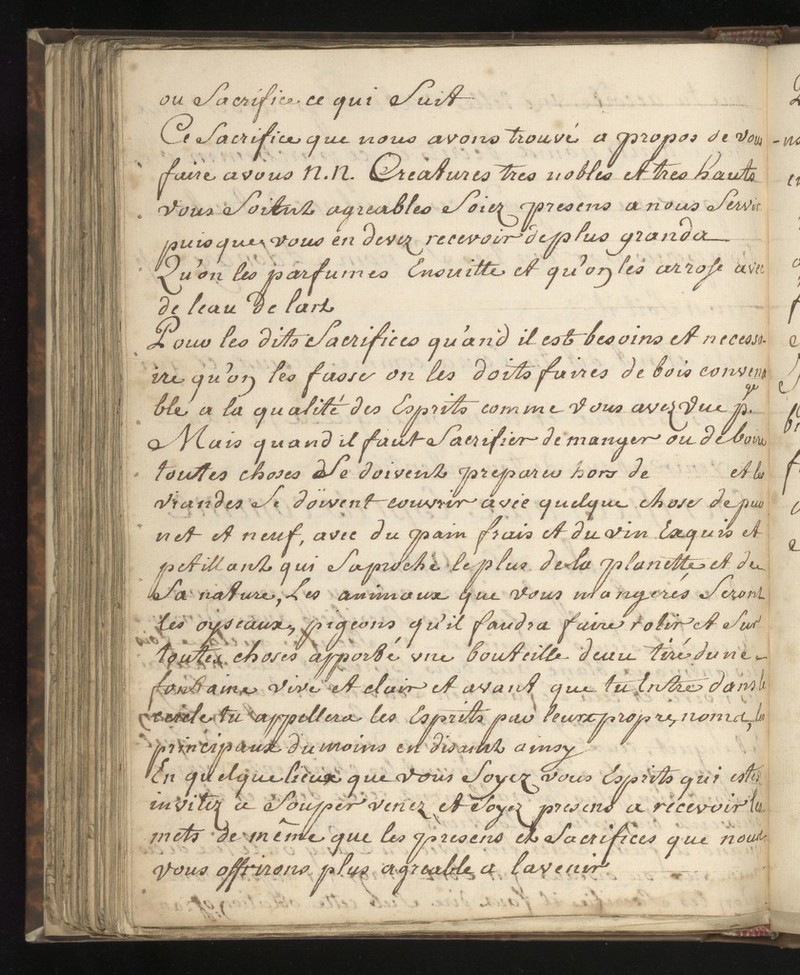 ou Sacrifice ce qui Suit
Ce Sacrifice que nous avons trouvé a propos de vous
faire avous N.N. Creatures tres nobles et tres hauts
vous Soitnt agreables Soiez presens a nous Servir
puis que vous en devez recevoir de plus grands
Qu'on les parfumes Ensuitte et qu'on les arrose avec
de leau de lart
Pour les dits Sacrifices quand il est besoins et necessa-
ire qu'on les fasse on les doits faires de bois convena
ble a la qualité des Esprits comme vous avez vue p.
ge
Mais quand il faut Sacrifier de manger ou de boire
toutes choses Se doivent preparer hors de et les
viandes Se doivent couvrir avec quelque chose de pur
net et neuf, avec du pain frais et du vin Exquis et
petillant qui Saproche le plus de la planette et de
Sa nature, Les animaux que vous mangerés Seront
les oyseaux, pigeons qu'il faudra faire rotir et Sur
toutes choses apporté une bouteille deau tiré dune
fontaine vive et clair et avant que tu Entre dans le
cercle tu appellera les Esprits par leurs propre, noms, les
principaux du moins en disant ainsy
En quelque lieux que vous Soyez vous Esprits qui estes
invitez a Souper venez et Soyez presens a recevoir les
mets de même que les presens et Sacrifices que nous
vous offrirons plus agreable a lavenir